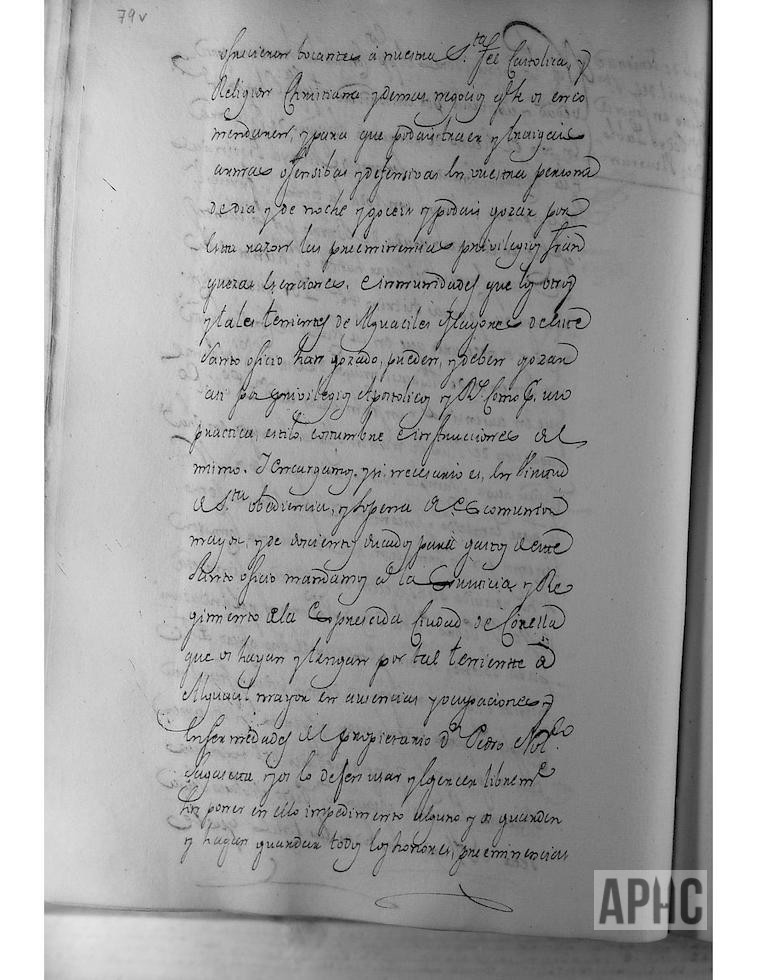 79v
ofrecieren tocantes á nuestra S.ta fee Catolica, y
Religion Christiana y demas negocios q.e se os enco
mendaren, y para que podais traer y traigais
armas ofensibas y defensivas en vuestra persona
de dia y de noche y goceis y podais gozar por
esta razon las preeminencias privilegios fran
quezas esenciones, e inmunidades que los otros
y tales tenientes de Alguaciles Mayores de este
Santo oficio han gozado, pueden, y deben gozar
asi por privilegios Apostolicos y R.s como p.r uso
practica, estilo, costumbre e instrucciones del
mimo. I encargamos, y si necesario es, en Virtud
de S.ta obediencia, y so pena de excomunion
mayor, y de doscientos ducados para gastos de este
Santo oficio mandamos a la Justicia y Re
gimiento de la expresada Ciudad de Corella
que os hayan y tengan por tal teniente de
Alguacil mayor en ausencias y ocupaciones y
enfermedades del propietario d.n Pedro
Sagaseta, y os lo defen usar y egercer librem.te
sin poner en ello impedimento alguno y os guarden
y hagan guardar todos los honores, preeminencias
APHC